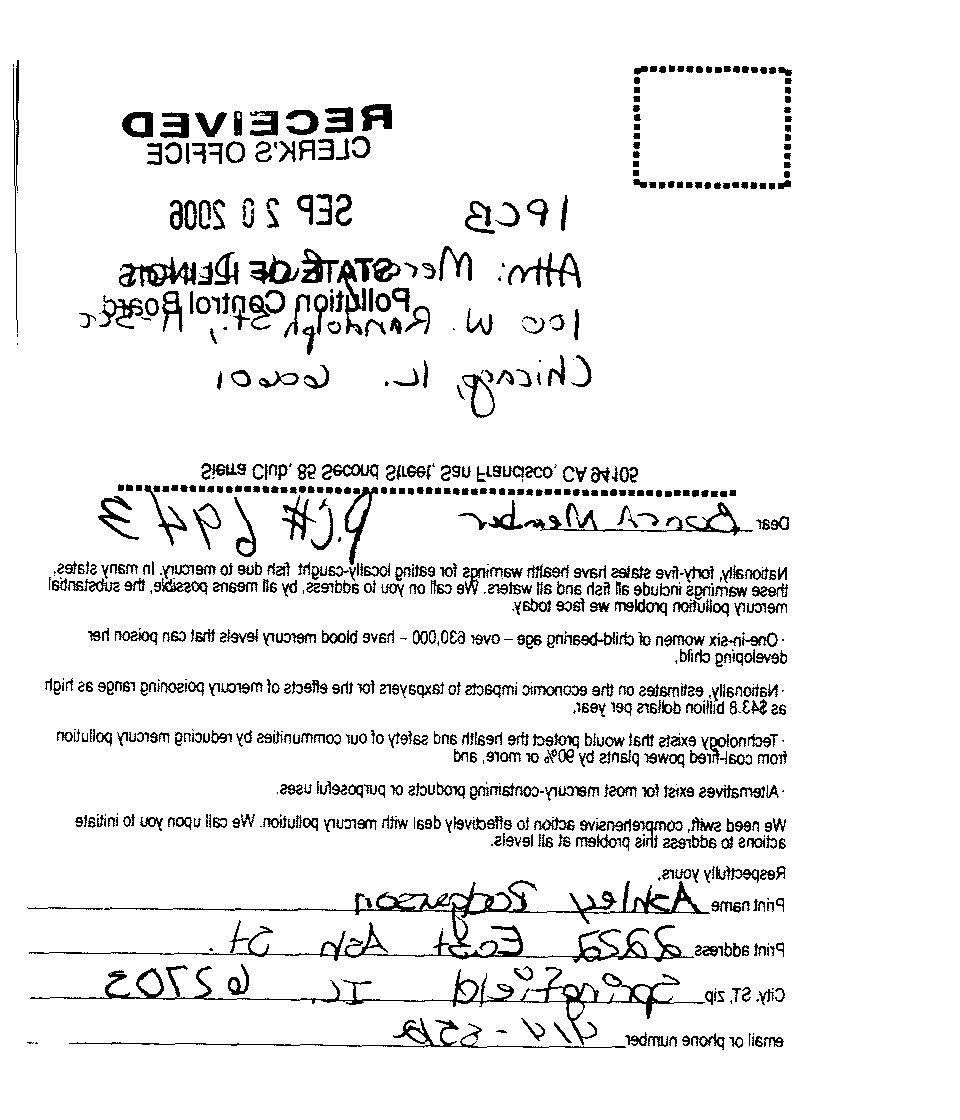 RECEIVED
CLERK'S OFFICE
SEP 20 2006
STATE OF ILLINOIS
Pollution Control Board
IPCB
Attn: Merc
100 W. Randolph St.,
Chicago, IL. 60601
Sierra Club, 85 Second Street, San Francisco, CA 94105
P.C.# 6943
Dear Board Member
Nationally, forty-five states have health warnings for eating locally-caught fish due to mercury. In many states,
these warnings include all fish and all waters. We call on you to address, by all means possible, the substantial
mercury pollution problem we face today.
· One-in-six women of child-bearing age – over 630,000 – have blood mercury levels that can poison her
developing child,
· Nationally, estimates on the economic impacts to taxpayers for the effects of mercury poisoning range as high
as $43.8 billion dollars per year,
· Technology exists that would protect the health and safety of our communities by reducing mercury pollution
from coal-fired power plants by 90% or more, and
· Alternatives exist for most mercury-containing products or purposeful uses.
We need swift, comprehensive action to effectively deal with mercury pollution. We call upon you to initiate
actions to address this problem at all levels.
Respectfully yours,
Print name Ashley Rodgerson
Print address 2222 East Ash St.
City, ST, zip Springfield IL. 62703
email or phone number